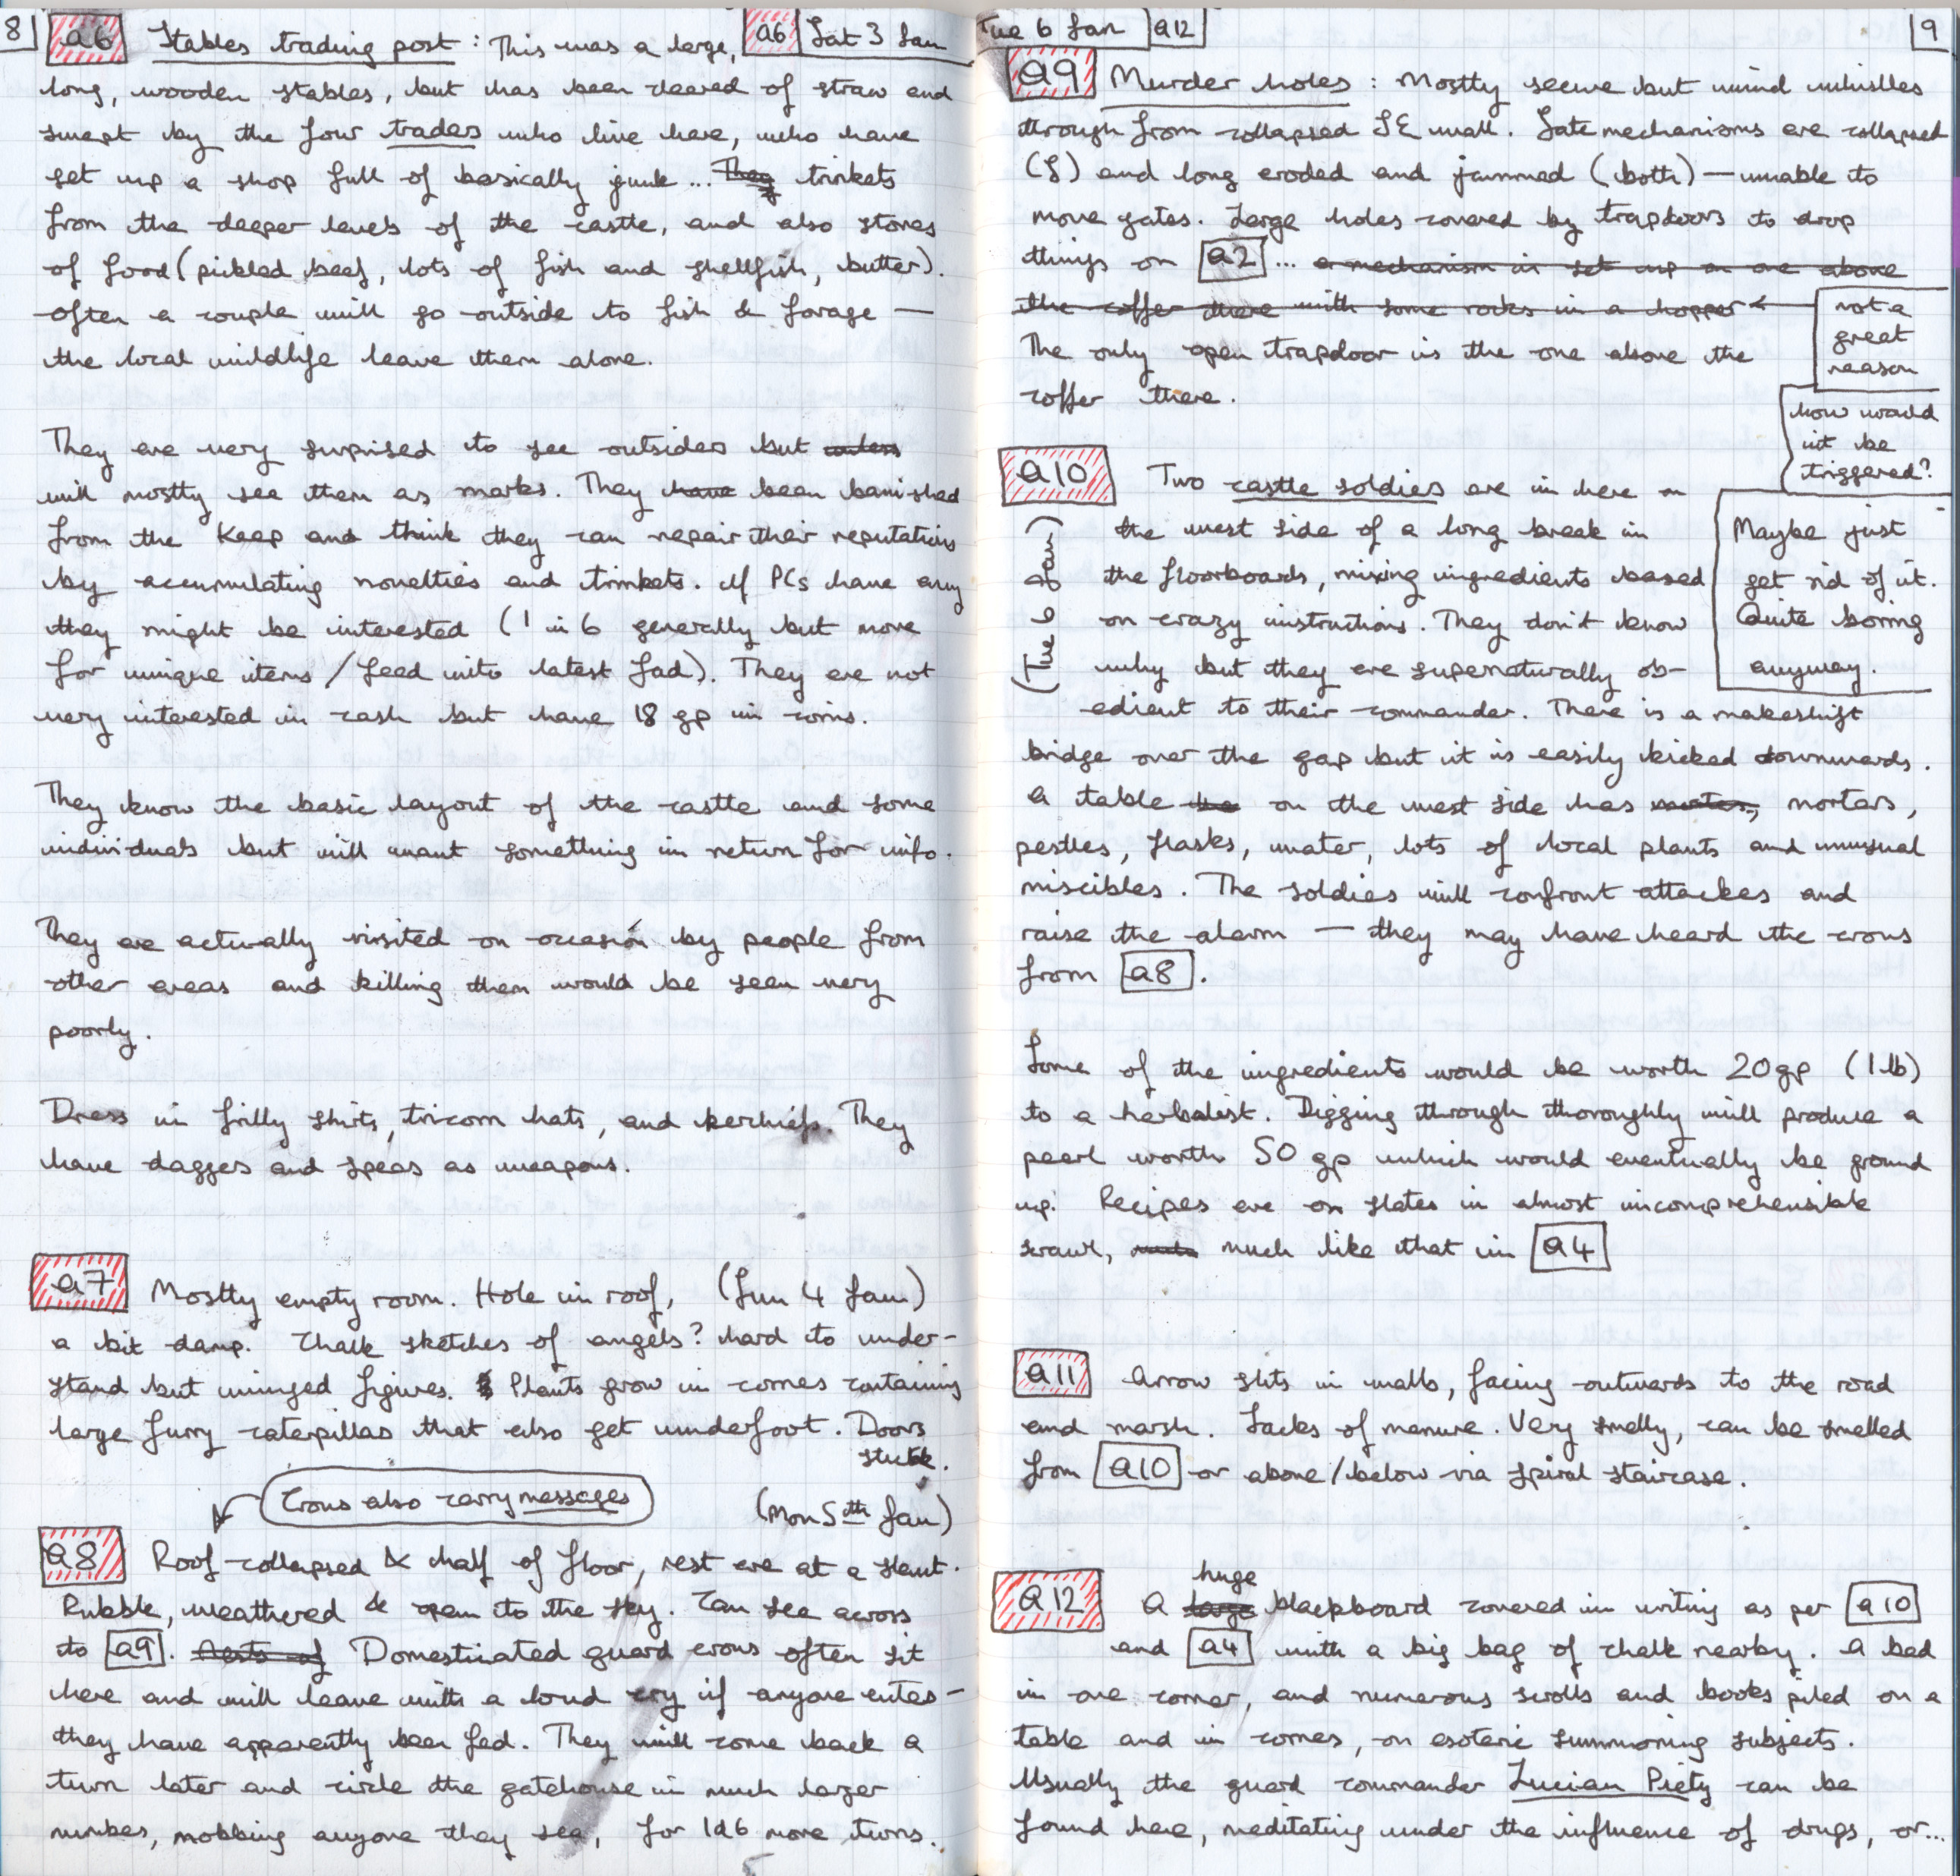 8 a6 Stables trading post : This was a large, a6 Sat 3 Jan
long, wooden stables, but has been cleared of straw and
swept by the four traders who live here, who have
set up a shop full of basically junk ... They trinkets
from the deeper levels of the castle, and also stores
of food (pickled beef, lots of fish and shellfish, butter).
Often a couple will go outside to fish & forage —
the local wildlife leave them alone.
They are very surprised to see outsiders but unless
will mostly see them as marks. They have been banished
from the Keep and think they can repair their reputations
by accumulating novelties and trinkets. If PCs have any
they might be interested (1 in 6 generally but more
for unique items / feed into latest fad). They are not
very interested in cash but have 18 gp in coins.
They know the basic layout of the castle and some
individuals but will want something in return for info.
They are actually visited on occasion by people from
other areas and killing them would be seen very
poorly.
Dress in frilly shirts, tricorn hats, and kerchiefs. They
have daggers and spears as weapons.
a7 Mostly empty room. Hole in roof, (Sun 4 Jan)
a bit damp. Chalk sketches of angels? hard to under-
stand but winged figures. Plants grow in corners containing
large furry caterpillars that also get underfoot. Doors
stuck.
Crows also carry messages
(Mon 5th Jan)
a8 Roof collapsed & half of floor, rest are at a slant.
Rubble, weathered & open to the sky. Can see across
to a9. Nests of Domesticated guard crows often sit
here and will leave with a loud cry if anyone enters –
they have apparently been fed. They will come back a
turn later and circle the gatehouse in much larger
number, mobbing anyone they see, for 1d6 more turns.
Tue 6 Jan a12 9
a9 Murder holes : Mostly secure but wind whistles
through from collapsed SE wall. Gate mechanisms are collapsed
(S) and long eroded and jammed (both) — unable to
move gates. Large holes covered by trapdoors to drop
things on a2 ... a mechanism is set up on one above
the coffer there with some rocks in a hopper ←
not a
great
reason
The only open trapdoor is the one above the
coffer there.
how would
it be
triggered?
Maybe just
get rid of it.
Quite boring
anyway.
a10 Two castle soldiers are in here on
(Tue 6 Jan)
the west side of a long break in
the floorboards, mixing ingredients based
on crazy instructions. They don't know
why but they are supernaturally ob-
edient to their commander. There is a makeshift
bridge over the gap but it is easily kicked downwards.
A table on the west side has mortars,
pestles, flasks, water, lots of local plants and unusual
miscibles. The soldiers will confront attackers and
raise the alarm — they may have heard the crows
from a8.
Some of the ingredients would be worth 20gp (1 lb)
to a herbalist. Digging through thoroughly will produce a
pearl worth 50 gp which would eventually be ground
up. Recipes are on slates in almost incomprehensible
scrawl, much like that in a4
a11 Arrow slits in walls, facing outwards to the road
and marsh. Sacks of manure. Very smelly, can be smelled
from a10 or above/below via spiral staircase.
huge
a12 A large blackboard covered in writing as per a10
and a4 with a big bag of chalk nearby. A bed
in one corner, and numerous scrolls and books piled on a
table and in corners, on esoteric summoning subjects.
Usually the guard commander Lucian Piety can be
found here, meditating under the influence of drugs, or...